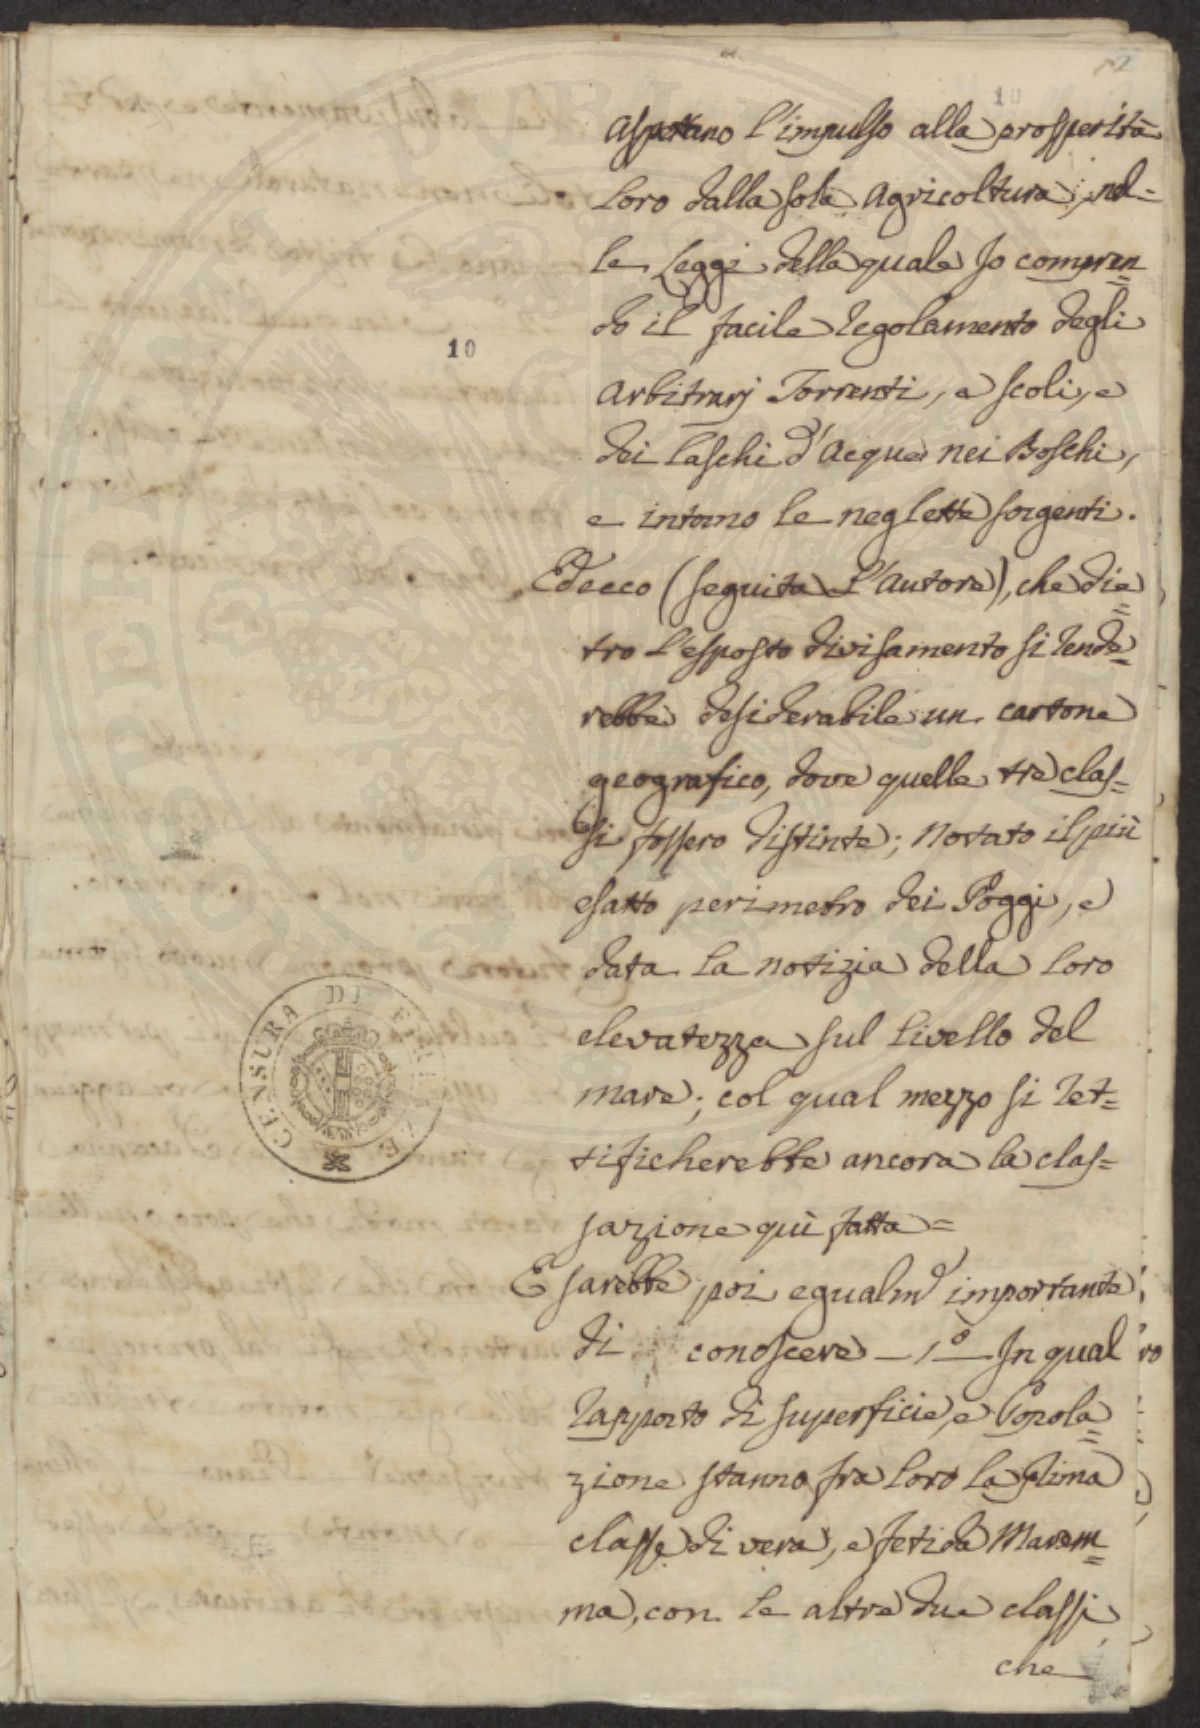 10
aspettano l'impulso alla prosperità
loro dalla sola Agricoltura; nel=
le Leggi della quale Io compren=
do il facile regolamento degli
arbitrarj Torrenti, e scoli, e
10
dei laschi d'Acque nei Boschi,
e intorno le neglette sorgenti.
Ed ecco (seguita l'Autore), che die=
tro l'esposto divisamento si rende=
rebbe desiderabile un cartone
geografico, dove quelle tre clas=
si fossero distinte; notato il più
esatto perimetro dei Poggi, e
data la notizia della loro
elevatezza sul livello del
mare; col qual mezzo si ret=
tificherebbe ancora la clas=
sazione quì fatta =
E sarebbe poi egualm.e importante
di conoscere — 1.o — In qual
rapporto di superficie, e Popola=
zione stanno fra loro la prima
classe di vera, e fetida Marem=
ma, con le altre due classi
che
CENSURA DI FIRENZE